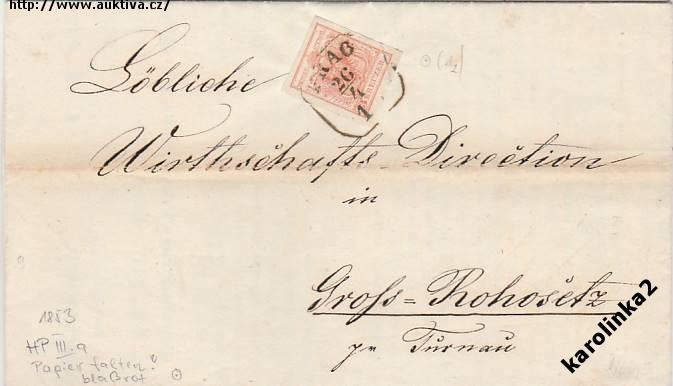 http://www.auktiva.cz/
PRAG
26
4
1
Löbliche
Wirthschafts-Direction
in
Gross=Rohosetz
pr Turnau
1853
HP III.a
Papier falten
blaßrot
karolinka2